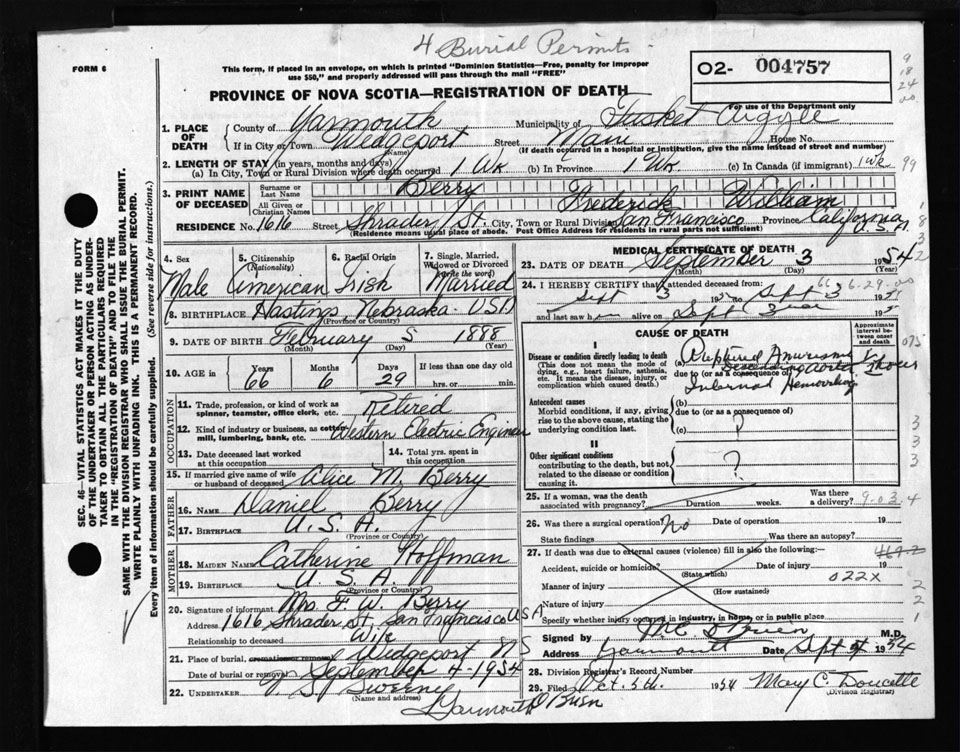 4 Burial Permits -
FORM 6
This form, if placed in an envelope, on which is printed "Dominion Statistics—Free, penalty for improper use $50," and properly addressed will pass through the mail "FREE"
O2- 004757
For use of the Department only
9
18
24
00
99
PROVINCE OF NOVA SCOTIA—REGISTRATION OF DEATH
SEC. 46—VITAL STATISTICS ACT MAKES IT THE DUTY OF THE UNDERTAKER OR PERSON ACTING AS UNDERTAKER TO OBTAIN ALL THE PARTICULARS REQUIRED IN THE "REGISTRATION OF DEATH" AND TO FILE THE SAME WITH THE DIVISION REGISTRAR WHO SHALL ISSUE THE BURIAL PERMIT.
WRITE PLAINLY WITH UNFADING INK. THIS IS A PERMANENT RECORD.
Every item of information should be carefully supplied. (See reverse side for instructions.)
1. PLACE OF DEATH
County of Yarmouth Municipality of Tusket Argyle
If in City or Town Wedgeport Street Main House No.
(Name) (If death occurred in a hospital or institution, give name instead of street and number)
2. LENGTH OF STAY (in years, months and days)
(a) In City, Town or Rural Division where death occurred 1 Wk (b) In Province 1 Wk. (c) In Canada (if immigrant) 1 wk
3. PRINT NAME OF DECEASED
Surname or Last Name Berry
All Given or Christian Names Frederick William
RESIDENCE No. 1616 Shrader St. City, Town or Rural Division San Francisco Province California U.S.A.
(Residence means usual place of abode. Post Office Address for residents in rural parts not sufficient)
4. Sex Male
5. Citizenship (Nationality) American
6. Racial Origin Irish
7. Single, Married, Widowed or Divorced (write the word) Married
8. BIRTHPLACE Hastings, Nebraska - USA
(Province or Country)
9. DATE OF BIRTH February 5 1888
(Month) (Day) (Year)
10. AGE Years 66 Months 6 Days 29 If less than one day old hrs. or min.
OCCUPATION
11. Trade, profession, or kind of work as spinner, teamster, office clerk, etc. retired
12. Kind of industry or business, as cotton-mill, lumbering, bank, etc. Western Electric Engineer
13. Date deceased last worked at this occupation
14. Total yrs. spent in this occupation
15. If married give name of wife or husband of deceased Alice M. Berry
FATHER
16. NAME Daniel Berry
17. BIRTHPLACE U.S.A.
(Province or Country)
MOTHER
18. MAIDEN NAME Catherine Hoffman
19. BIRTHPLACE U.S.A.
(Province or Country)
20. Signature of informant Mrs. F. W. Berry
Address 1616 Shrader St, San Francisco USA
Relationship to deceased Wife
21. Place of burial, cremation or removal Wedgeport NS
Date of burial or removal September 4 1954
22. UNDERTAKER Sweeny
(Name and address)
Yarmouth
MEDICAL CERTIFICATE OF DEATH
23. DATE OF DEATH September 3 1954
(Month) (Day) (Year)
24. I HEREBY CERTIFY that I attended deceased from:
Sept 3 19 to Sept 3 19
and last saw h alive on Sept 3 19
66 6-29-00
CAUSE OF DEATH
Approximate interval between onset and death
I
Disease or condition directly leading to death
(This does not mean the mode of dying, e.g., heart failure, asthenia, etc. It means the disease, injury, or complication which caused death.)
(a) Ruptured Aneurism
Descending Aorta
due to (or as a consequence of)
Internal Hemorrhage
hours
Antecedent causes
Morbid conditions, if any, giving rise to the above cause, stating the underlying condition last.
(b)
due to (or as a consequence of)
(c) ?
II
Other significant conditions
contributing to the death, but not related to the disease or condition causing it.
?
25. If a woman, was the death associated with pregnancy? Duration weeks. Was there a delivery?
9-03.4
26. Was there a surgical operation? No Date of operation 19
State findings Was there an autopsy?
27. If death was due to external causes (violence) fill in also the following:—
Accident, suicide or homicide? Date of injury 19
(State which)
Manner of injury
(How sustained)
022X
Nature of injury
Specify whether injury occurred in industry, in home, or in public place
Signed by O'Brien M.D.
Address Yarmouth Date Sept 4 1954
28. Division Registrar's Record Number
29. Filed Oct. 5th. 1954 Mary C. Doucette
(Division Registrar)